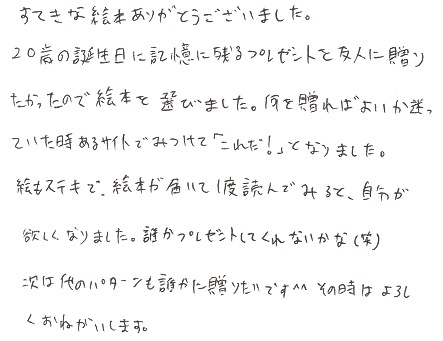 すてきな絵本ありがとうございました。
20歳の誕生日に記憶に残るプレゼントを友人に贈り
たかったので絵本を選びました。何を贈ればよいか迷っ
ていた時あるサイトでみつけて「これだ!」となりました。
絵もステキで、絵本が届いて1度読んでみると、自分が
欲しくなりました。誰かプレゼントしてくれないかな(笑)
次は他のパターンも誰かに贈りたいです^^ その時はよろし
くおねがいします。